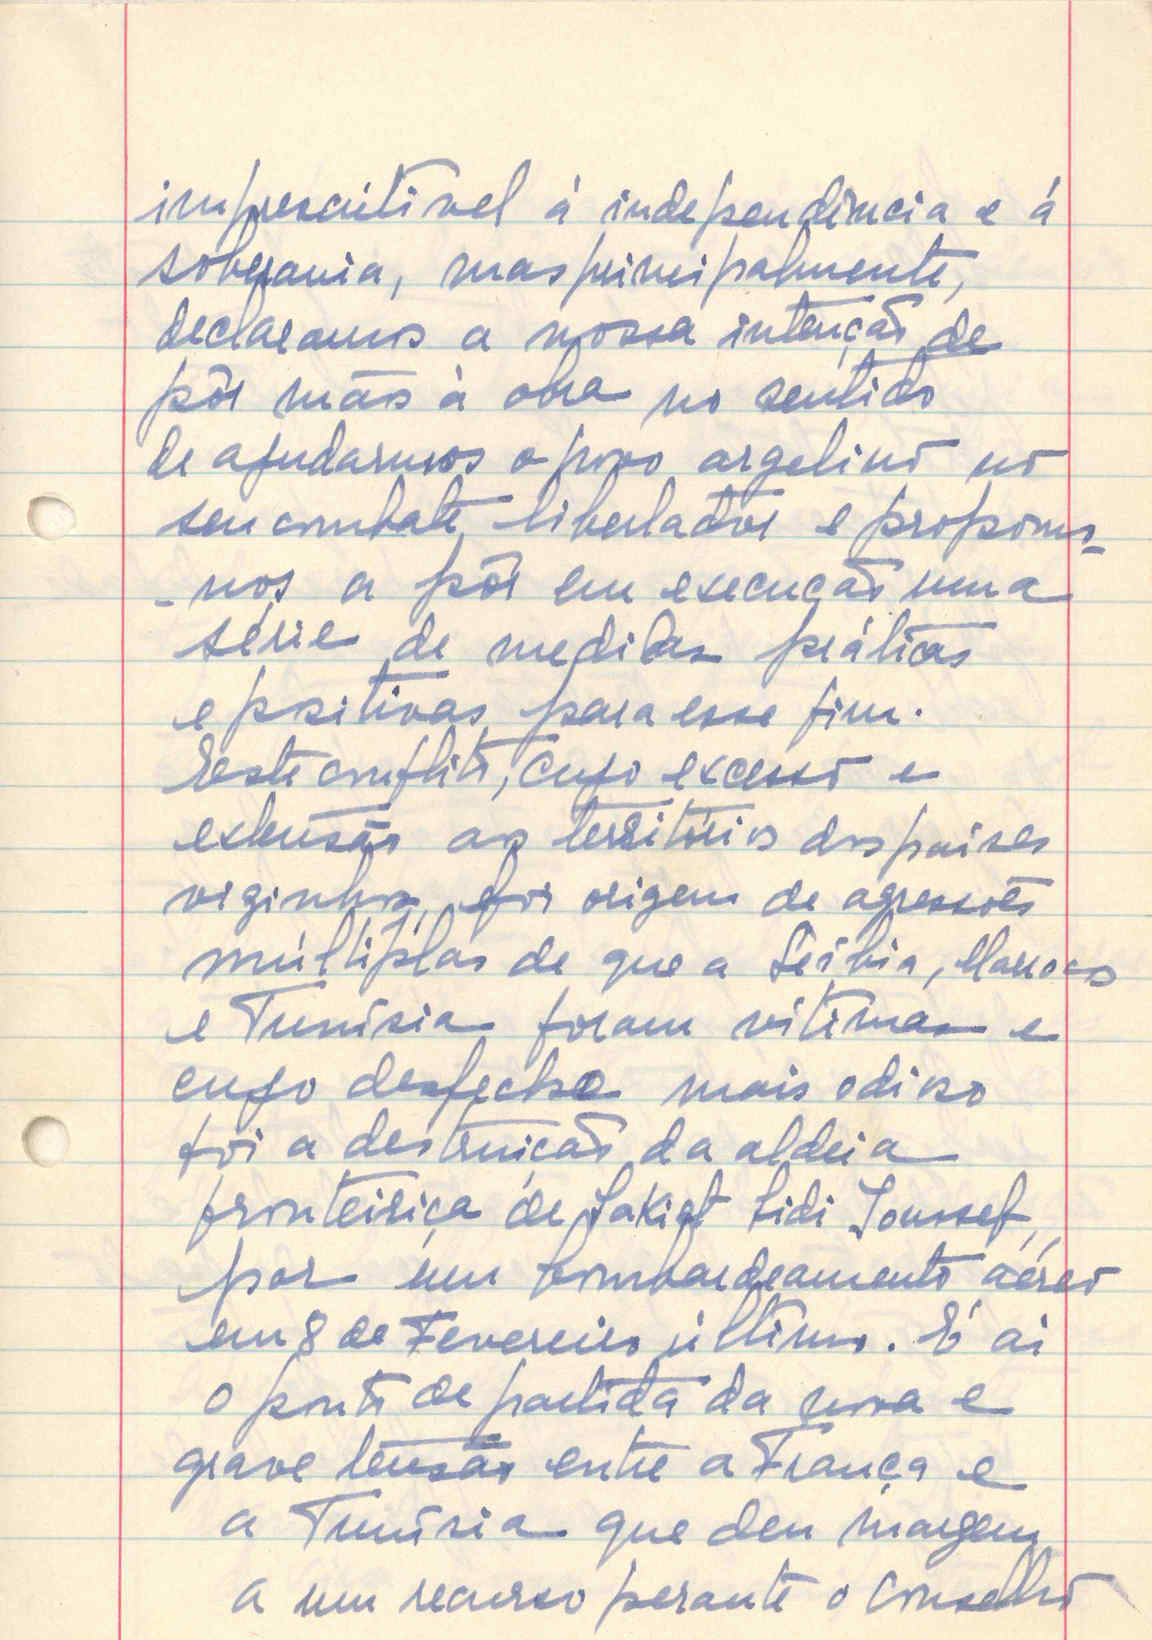 imprescritivel á independência e á
soberania, mas principalmente,
declaramos a nossa intenção de
pôr mãos à obra no sentido
de ajudarmos o povo argelino no
seu combate libertador e propomo-
-nos a pôr em execução uma
série de medidas práticas
e positivas para esse fim.
Este conflito, cujo excesso e
extensão aos territórios dos paises
viginhos, foi origem de agressões
múltiplas de que a Líbia, Marrocos
e Tunísia foram vitimas e
cujo desfecho mais odioso
foi a destruição da aldeia
fronteiriça de Sakiet Sidi Youssef,
por um bombardeamento aéreo
em 8 de Fevereiro último. É ai
o ponto de partida da nova e
grave tensão entre a França e
a Tunísia que deu margem
a um recurso perante o Conselho